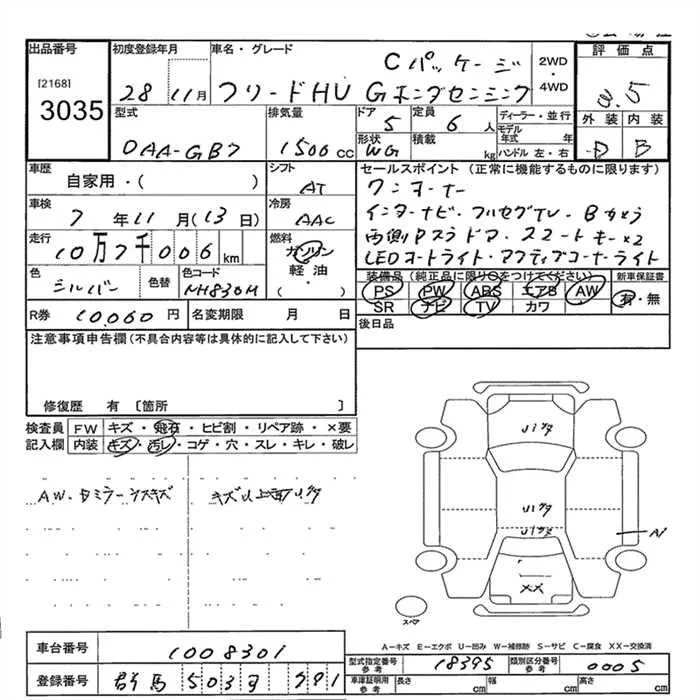 出品番号
[2168]
3035
初度登録年月
28 11月
車名・グレード
Cパッケージ
フリードHV Gホンダセンシング
2WD
・
4WD
評価点
3.5
外装 内装
D B
型式
DAA-GB7
排気量
1500 cc
ドア
5
定員
6 人
形状
WG
積載
kg
ディーラー・並行
モデル
年式 年
ハンドル 左・右
車歴
自家用・( )
シフト
AT
車検
7 年 11 月 (13 日)
冷房
AAC
走行
10万7千006 km
燃料
ガソリン
軽油
( )
色
シルバー
色替
色コード
NH830M
R券
10060 円
名変期限 月 日
セールスポイント(正常に機能するものに限ります)
ワンオーナー
インターナビ・フルセグTV・Bカメラ
両側Pスラドア・スマートキー×2
LEDヘッドライト・アクティブコーナーライト
装備品(純正品に限り○をつけてください)
PS PW ABS エアB AW
SR ナビ TV カワ
新車保証書
有・無
後日品
注意事項申告欄(不具合内容等は具体的に記入して下さい)
修復歴 有〔箇所 〕
検査員
記入欄
FW キズ・飛石・ヒビ割・リペア跡・×要
内装 キズ・汚レ・コゲ・穴・スレ・キレ・破レ
AW・ドミラーンスキズ
スペア
XX
A1
A-キズ E-エクボ U-凹み W-補修跡 S-サビ C-腐食 XX-交換済
車台番号
1008301
登録番号
群馬 503
型式指定番号
参考
18395
類別区分番号
参考
0005
車庫証明用
参考
長さ cm
幅 cm
高さ cm